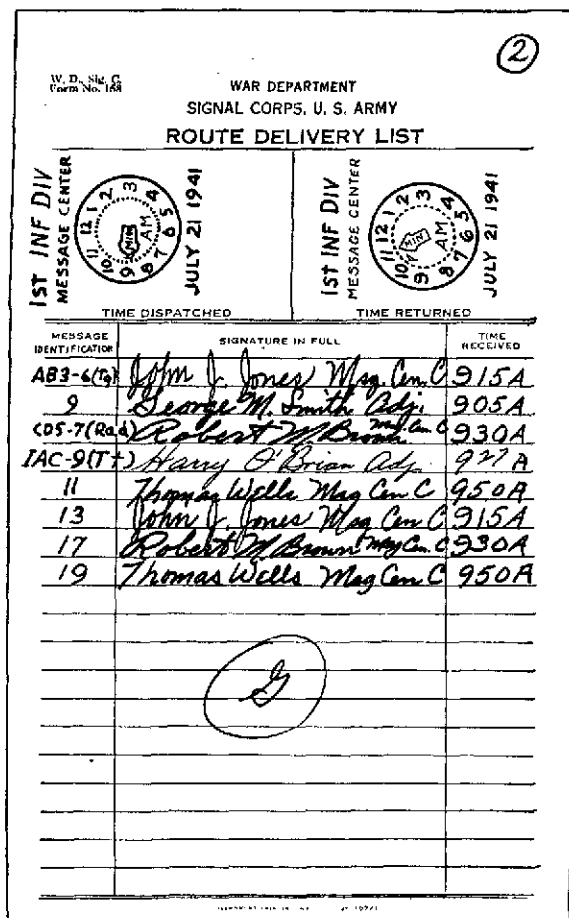 2
W. D., Sig. C.
Form No. 158
WAR DEPARTMENT
SIGNAL CORPS, U. S. ARMY
ROUTE DELIVERY LIST
1ST INF DIV
MESSAGE CENTER
1 2 3 4 5 6 7 8 9 10 11 12
MIN
AM
JULY 21 1941
TIME DISPATCHED
1ST INF DIV
MESSAGE CENTER
1 2 3 4 5 6 7 8 9 10 11 12
MIN
AM
JULY 21 1941
TIME RETURNED
MESSAGE IDENTIFICATION SIGNATURE IN FULL TIME RECEIVED
AB3-6(Tg) John J. Jones Msg. Cen. C 915A
9 George M. Smith Adj. 905A
CD5-7(Rad) Robert M. Brown Msg Cen. C 930A
IAC-9(Tt) Harry O'Brian Adj. 927A
11 Thomas Wells Msg Cen C 950A
13 John J. Jones Msg Cen C 915A
17 Robert M Brown Msg Cen. C 930A
19 Thomas Wells Msg Cen C 950A